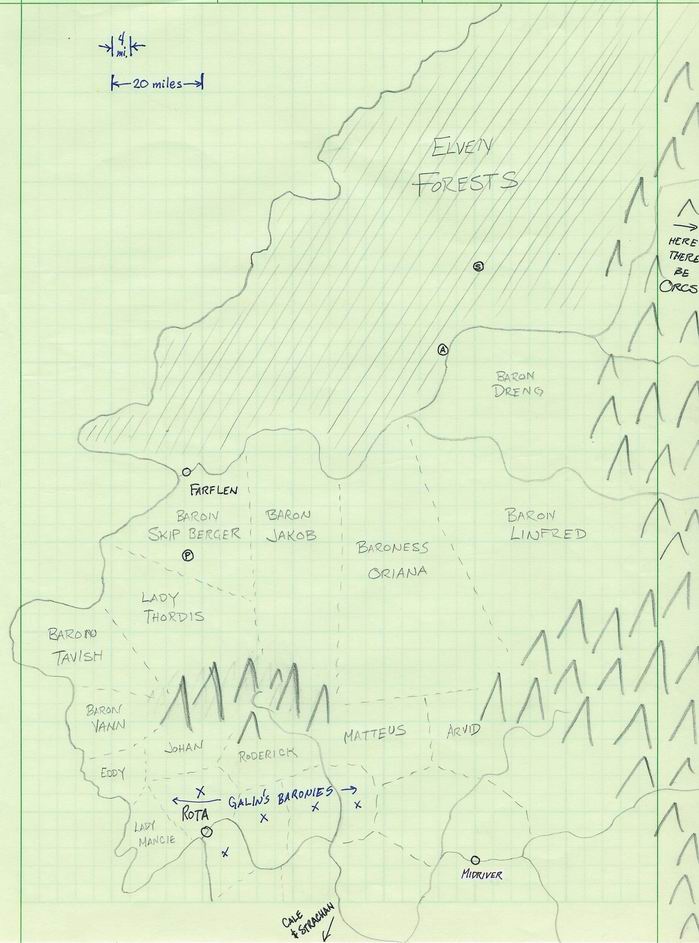 4
mi.
20 miles
ELVEN
FORESTS
HERE
THERE
BE
ORCS
S
A
BARON
DRENG
FARFLEN
BARON
SKIP BERGER
BARON
JAKOB
BARON
LINFRED
BARONESS
ORIANA
P
LADY
THORDIS
BARON
TAVISH
BARON
VANN
JOHAN
RODERICK
MATTEUS
ARVID
EDDY
X
GALIN'S BARONIES
X
X
X
ROTA
LADY
MANCIE
X
MIDRIVER
CALE
& STRACHAN